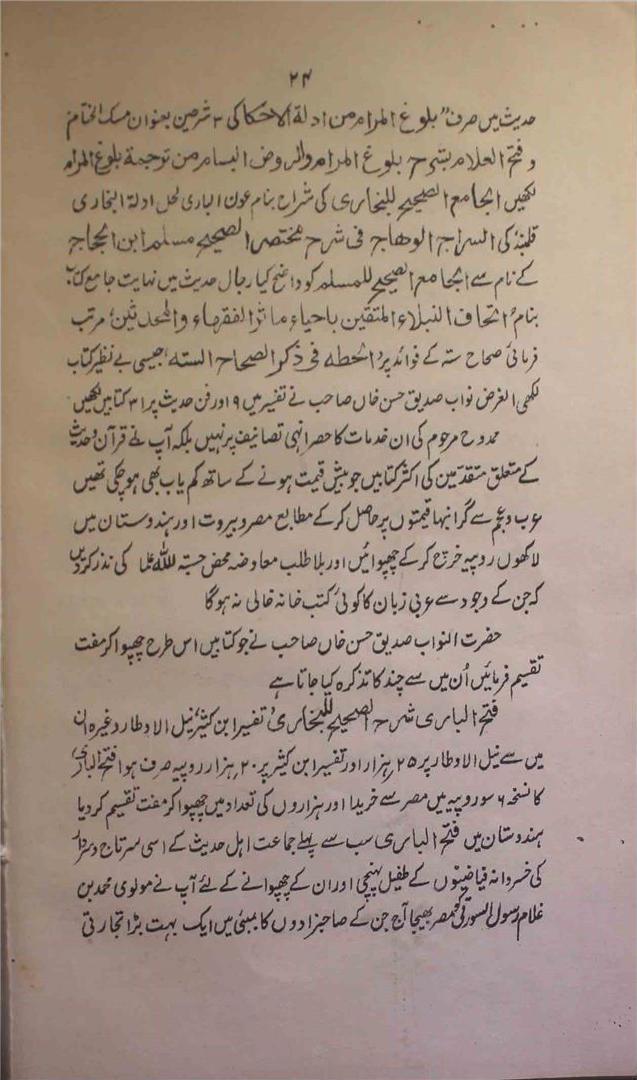 ۲۴
حدیث میں صرف "بلوغ المرام من ادلۃ الاحکام کی ۳ شرحیں بعنوان مسک الختام
وفتح العلام بشرح بلوغ المرام والروض البسام من ترجمۃ بلوغ المرام
لکھیں الجامع الصحیح للبخاری کی شراح بنام عون الباری لحل ادلۃ البخاری
قلمبند کی السراج الوھاج فی شرح مختصر الصحیح مسلم ابن الحجاج
کے نام سے الجامع الصحیح للمسلم کو واضح کیا رجال حدیث میں نہایت جامع کتاب
بنام اتحاف النبلاء المتقین باحیاء ماثر الفقہاء والمحدثین؛ مرتب
فرمائی صحاح ستہ کے فوائد پر الحطہ فی ذکر الصحاح الستہ؛ جیسی بے نظیر کتاب
لکھی الغرض نواب صدیق حسن خاں صاحب نے تفسیر میں ۹ اور فن حدیث پر ۳۱ کتابیں لکھیں
ممدوح مرحوم کی ان خدمات کا حصر انہی تصانیف پر نہیں بلکہ آپ نے قرآن وحدیث
کے متعلق متقدمین کی اکثر کتابیں جو بیش قیمت ہونے کے ساتھ کم یاب بھی ہو چکی تھیں
عرب و عجم سے گرانبہا قیمتوں پر حاصل کر کے مطابع مصر و بیروت اور ہندوستان میں
لاکھوں روپیہ خرچ کر کے چھپوائیں اور بلا طلب معاوضہ محض حسبۃ للہ علما کی نذر کردیں
کہ جن کے وجود سے عربی زبان کا کوئی کتب خانہ خالی نہ ہوگا
حضرت النواب صدیق حسن خاں صاحب نے جو کتابیں اس طرح چھپوا کر مفت
تقسیم فرمائیں اُن میں سے چند کا تذکرہ کیا جاتا ہے
فتح الباری شرح الصحیح للبخاری؛ تفسیر ابن کثیر؛ نیل الاوطار وغیرہ ان
میں سے نیل الاوطار پر ۲۵ ہزار اور تفسیر ابن کثیر پر ۲۰ ہزار روپیہ صرف ہوا فتح الباری
کا نسخہ ۶ سو روپیہ میں مصر سے خریدا اور ہزاروں کی تعداد میں چھپوا کر مفت تقسیم کر دیا
ہندوستان میں فتح الباری سب سے پہلے جماعت اہل حدیث کے اسی سرتاج و سردار
کی خسروانہ فیاضیوں کے طفیل پہنچی اور ان کے چھپوانے کے لئے آپ نے مولوی محمد بن
غلام رسول السورتی کو مصر بھیجا آج جن کے صاحبزادوں کا بمبئی میں ایک بہت بڑا تجارتی